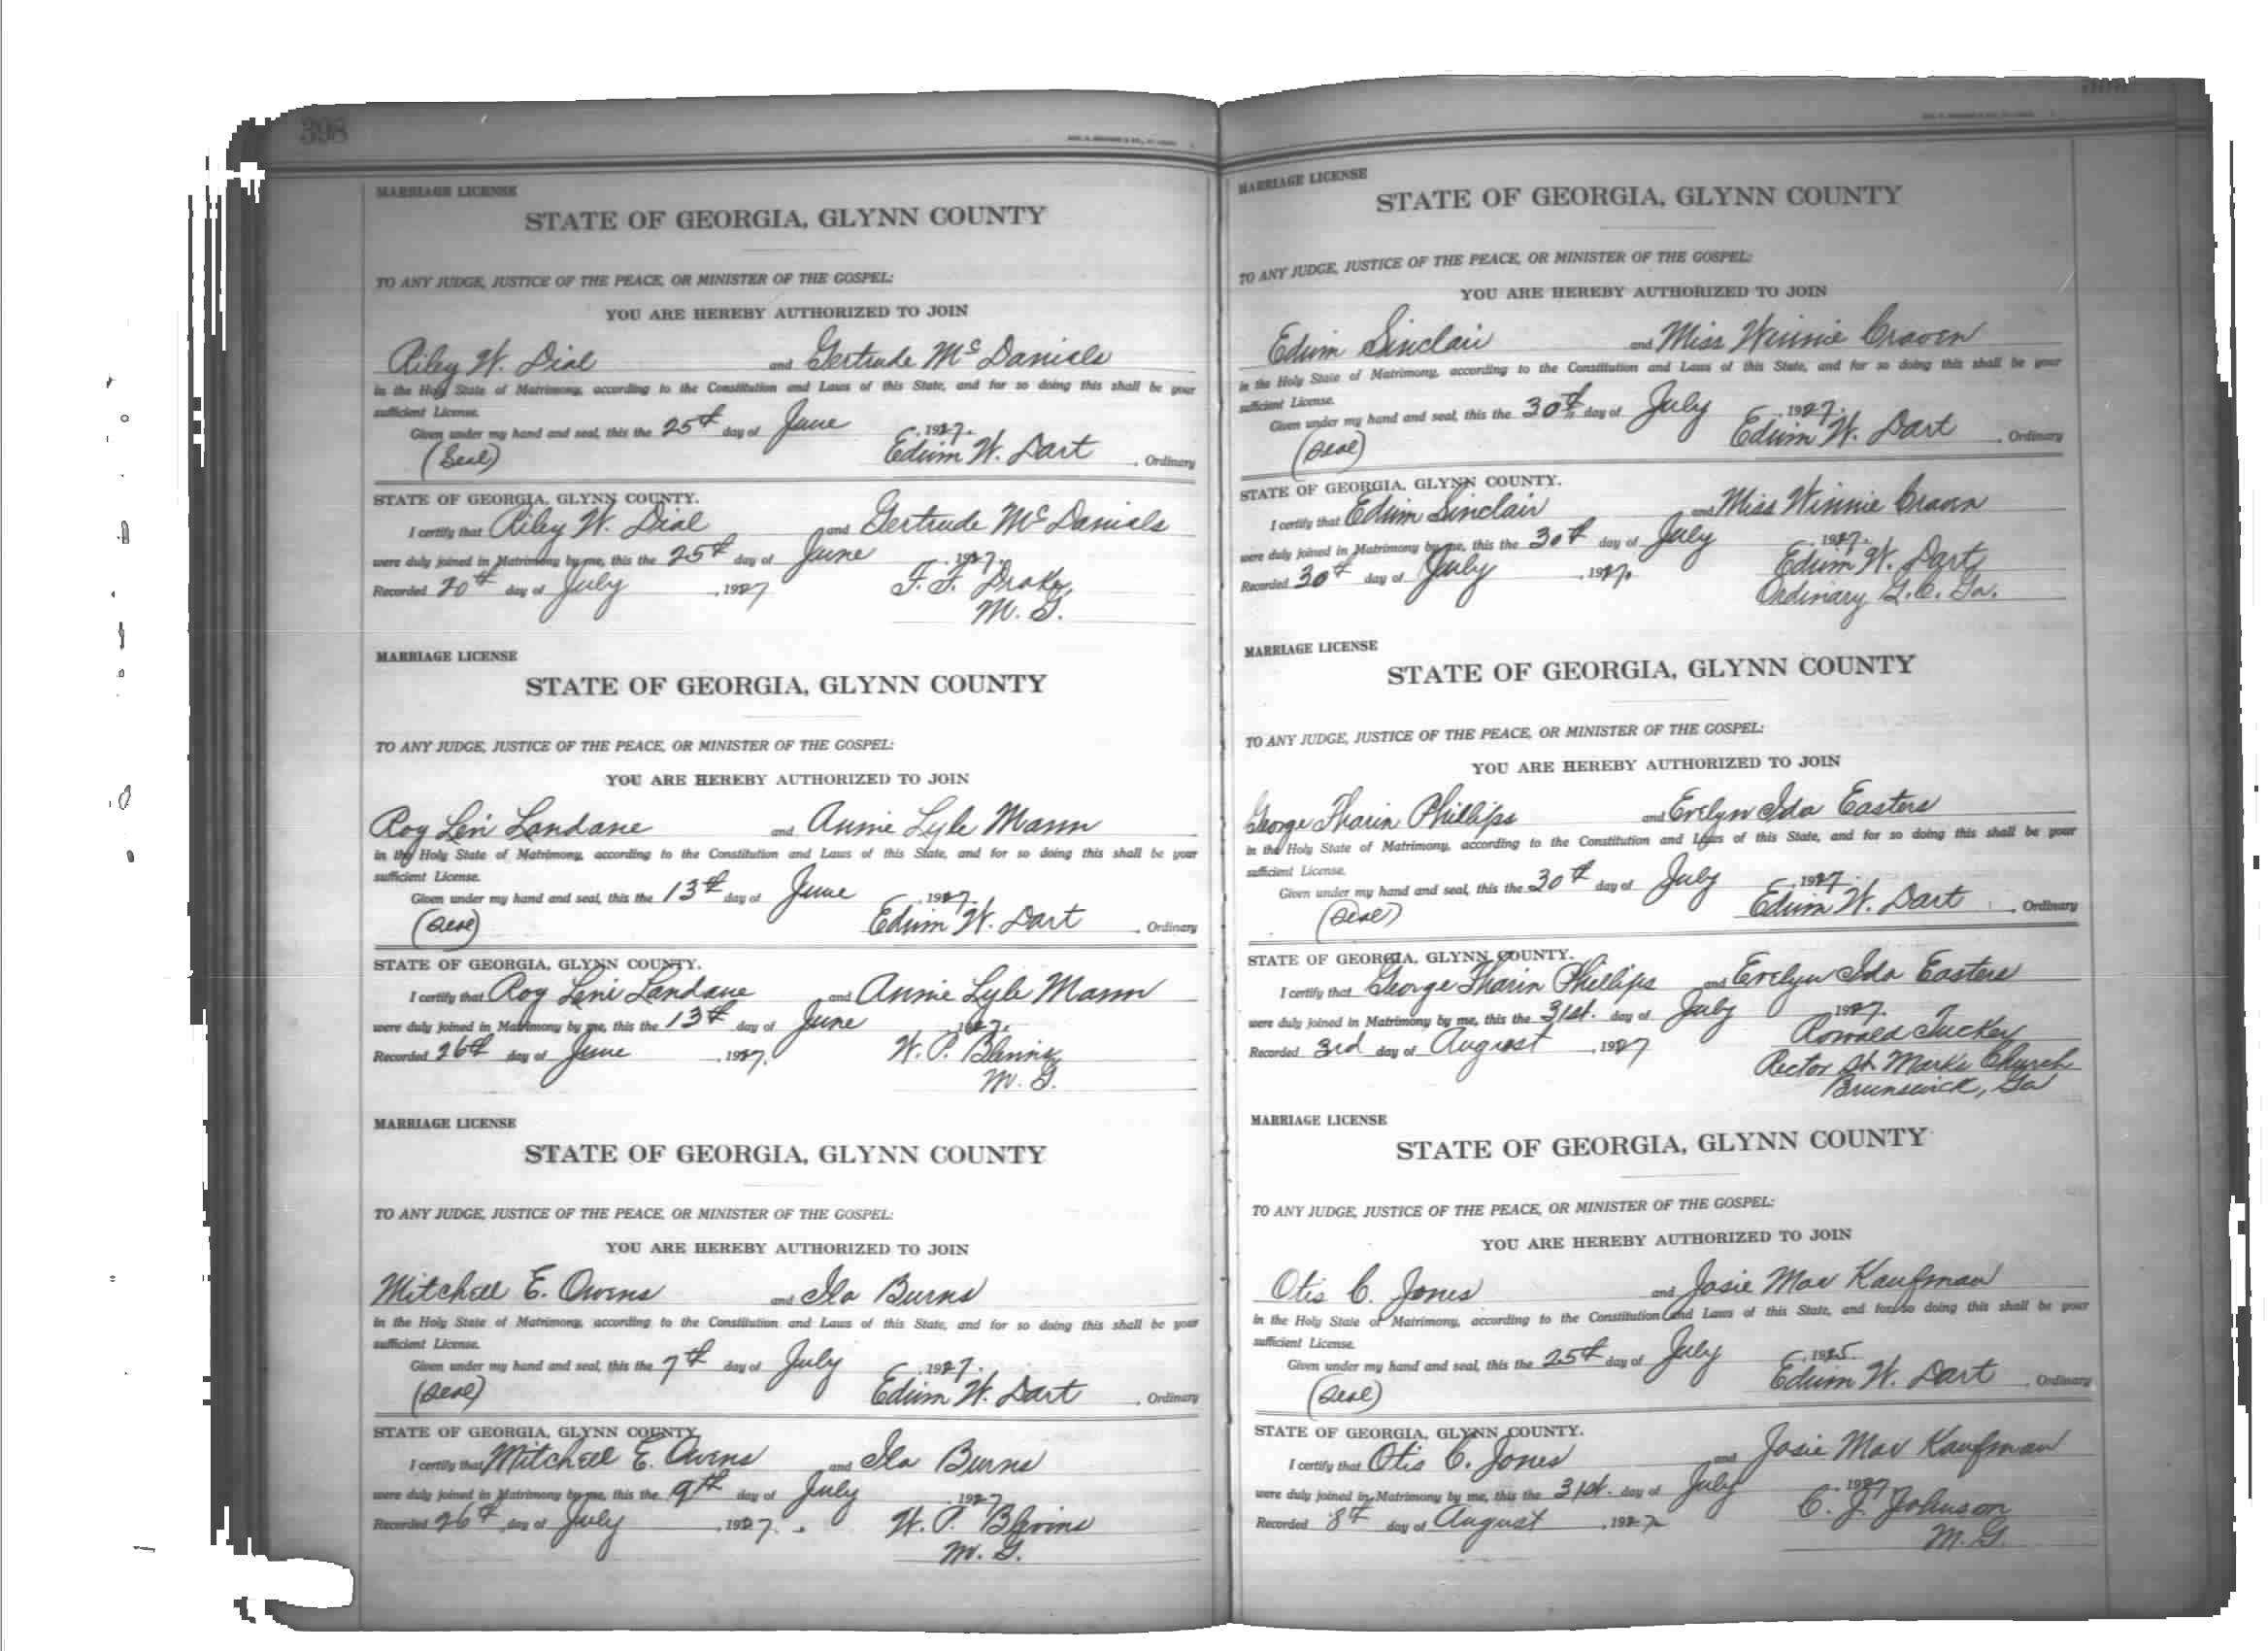 398
MARRIAGE LICENSE
STATE OF GEORGIA, GLYNN COUNTY
TO ANY JUDGE, JUSTICE OF THE PEACE, OR MINISTER OF THE GOSPEL:
YOU ARE HEREBY AUTHORIZED TO JOIN
Riley W. Dial and Gertrude McDaniels
in the Holy State of Matrimony, according to the Constitution and Laws of this State, and for so doing this shall be your
sufficient License.
Given under my hand and seal, this the 25th day of June, 1927.
(Seal) Edwin W. Dart, Ordinary
STATE OF GEORGIA, GLYNN COUNTY.
I certify that Riley W. Dial and Gertrude McDaniels
were duly joined in Matrimony by me, this the 25th day of June, 1927.
Recorded 20th day of July, 1927 F. F. Drake,
M. G.
MARRIAGE LICENSE
STATE OF GEORGIA, GLYNN COUNTY
TO ANY JUDGE, JUSTICE OF THE PEACE, OR MINISTER OF THE GOSPEL:
YOU ARE HEREBY AUTHORIZED TO JOIN
Roy Levi Landane and Annie Lyle Mann
in the Holy State of Matrimony, according to the Constitution and Laws of this State, and for so doing this shall be your
sufficient License.
Given under my hand and seal, this the 13th day of June, 1927.
(Seal) Edwin W. Dart, Ordinary
STATE OF GEORGIA, GLYNN COUNTY.
I certify that Roy Levi Landane and Annie Lyle Mann
were duly joined in Matrimony by me, this the 13th day of June, 1927.
Recorded 26th day of June, 1927. W. P. Blevins
M. G.
MARRIAGE LICENSE
STATE OF GEORGIA, GLYNN COUNTY
TO ANY JUDGE, JUSTICE OF THE PEACE, OR MINISTER OF THE GOSPEL:
YOU ARE HEREBY AUTHORIZED TO JOIN
Mitchell E. Owens and Ila Burns
in the Holy State of Matrimony, according to the Constitution and Laws of this State, and for so doing this shall be your
sufficient License.
Given under my hand and seal, this the 7th day of July, 1927.
(Seal) Edwin W. Dart, Ordinary
STATE OF GEORGIA, GLYNN COUNTY.
I certify that Mitchell E. Owens and Ila Burns
were duly joined in Matrimony by me, this the 9th day of July, 1927
Recorded 26th day of July, 1927. W. P. Blevins
M. G.
MARRIAGE LICENSE
STATE OF GEORGIA, GLYNN COUNTY
TO ANY JUDGE, JUSTICE OF THE PEACE, OR MINISTER OF THE GOSPEL:
YOU ARE HEREBY AUTHORIZED TO JOIN
Edwin Sinclair and Miss Winnie Craven
in the Holy State of Matrimony, according to the Constitution and Laws of this State, and for so doing this shall be your
sufficient License.
Given under my hand and seal, this the 30th day of July, 1927.
(Seal) Edwin W. Dart, Ordinary
STATE OF GEORGIA, GLYNN COUNTY.
I certify that Edwin Sinclair and Miss Winnie Craven
were duly joined in Matrimony by me, this the 30th day of July, 1927.
Recorded 30th day of July, 1927. Edwin W. Dart
Ordinary G. C. Ga.
MARRIAGE LICENSE
STATE OF GEORGIA, GLYNN COUNTY
TO ANY JUDGE, JUSTICE OF THE PEACE, OR MINISTER OF THE GOSPEL:
YOU ARE HEREBY AUTHORIZED TO JOIN
George Tharin Phillips and Evelyn Ida Easters
in the Holy State of Matrimony, according to the Constitution and Laws of this State, and for so doing this shall be your
sufficient License.
Given under my hand and seal, this the 30th day of July, 1927.
(Seal) Edwin W. Dart, Ordinary
STATE OF GEORGIA, GLYNN COUNTY.
I certify that George Tharin Phillips and Evelyn Ida Easters
were duly joined in Matrimony by me, this the 31st. day of July, 1927.
Recorded 3rd day of August, 1927 Ronald Tucker
Rector St Mark's Church
Brunswick, Ga
MARRIAGE LICENSE
STATE OF GEORGIA, GLYNN COUNTY
TO ANY JUDGE, JUSTICE OF THE PEACE, OR MINISTER OF THE GOSPEL:
YOU ARE HEREBY AUTHORIZED TO JOIN
Otis C. Jones and Josie Mae Kaufman
in the Holy State of Matrimony, according to the Constitution and Laws of this State, and for so doing this shall be your
sufficient License.
Given under my hand and seal, this the 25th day of July, 1925.
(Seal) Edwin W. Dart, Ordinary
STATE OF GEORGIA, GLYNN COUNTY.
I certify that Otis C. Jones and Josie Mae Kaufman
were duly joined in Matrimony by me, this the 31st. day of July, 1927
Recorded 8th day of August, 1927 C. J. Johnson
M. G.